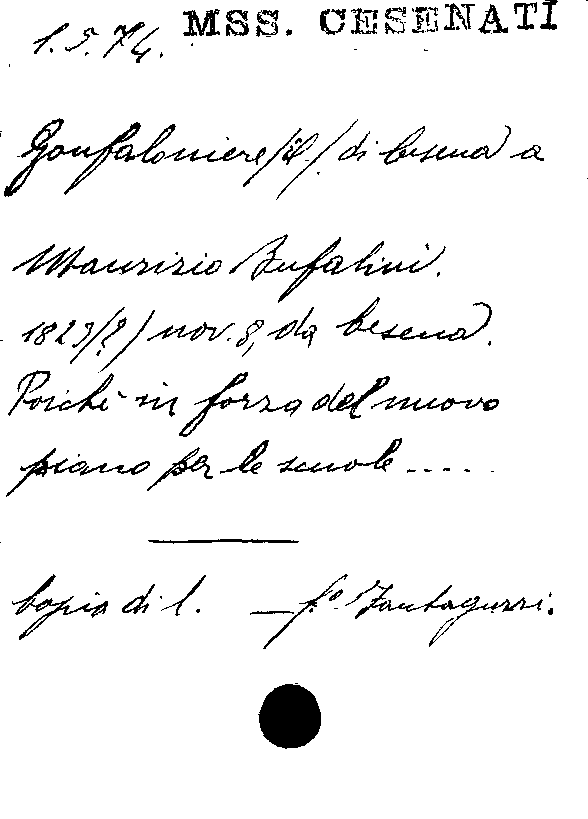 MSS. CESENATI
1.5.74.
Gonfaloniere /il/ di Cesena a
Maurizio Bufalini.
1823/?/ nov. 8, da Cesena.
Poichè in forza del nuovo
piano per le scuole .....
Copia di l. — f.° Fantaguzzi.